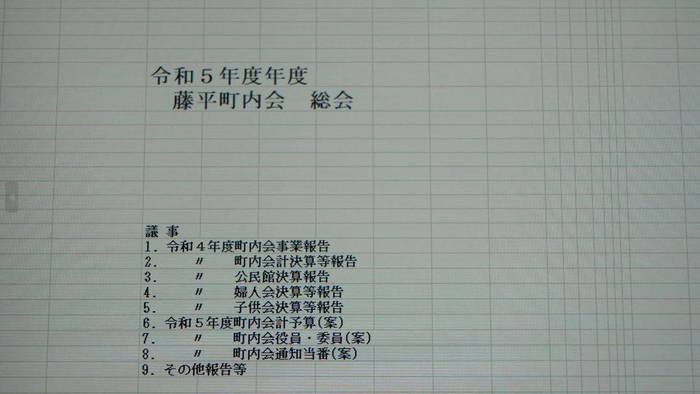 令和５年度年度
藤平町内会　総会
議 事
1. 令和４年度町内会事業報告
2. 〃 町内会計決算等報告
3. 〃 公民館決算報告
4. 〃 婦人会決算等報告
5. 〃 子供会決算等報告
6. 令和５年度町内会計予算(案)
7. 〃 町内会役員・委員(案)
8. 〃 町内会通知当番(案)
9. その他報告等